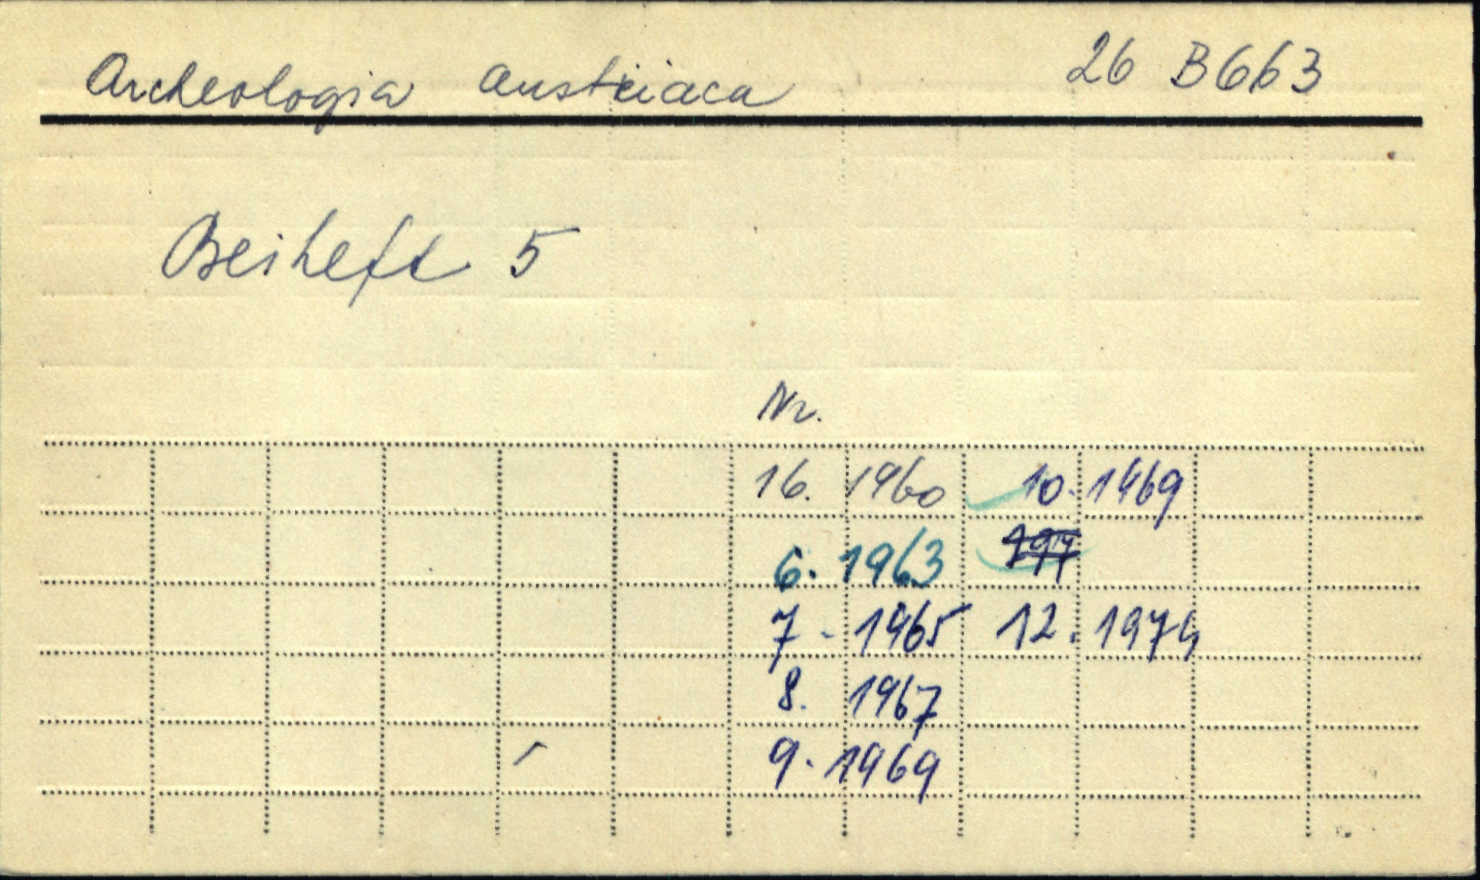 Archeologia austriaca 26 B663
Beiheft 5
Nr.
16. 1960 10. 1969
6. 1963
7 - 1965 12. 1974
8. 1967
9. 1969